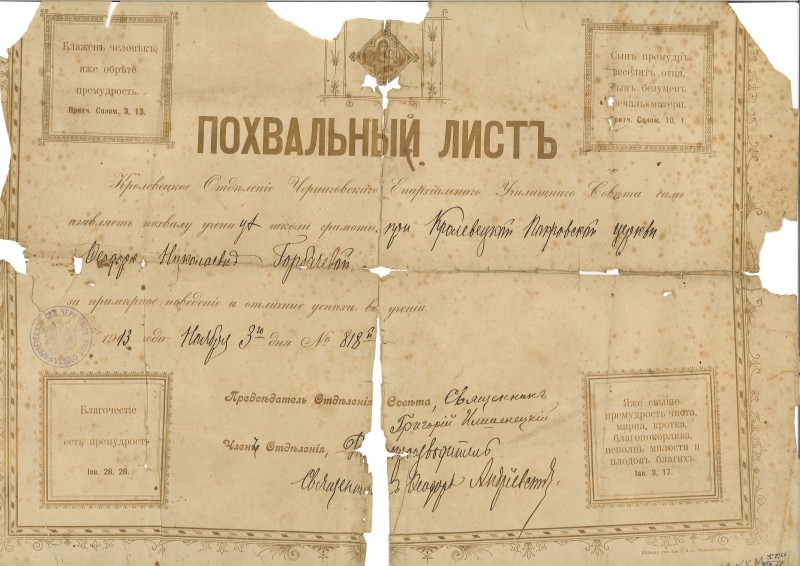 Блаженъ человѣкъ,
иже обрѣте
премудрость.
Притч. Солом. 3, 13.
Сынъ премудръ
веселитъ отца,
сынъ безуменъ
печаль матери.
Притч. Солом. 10, 1.
ПОХВАЛЬНЫЙ ЛИСТЪ
Кролевецкое Отдѣленіе Черниговскаго Епархіальнаго Училищнаго Совѣта симъ
изъявляетъ похвалу учени цѣ школы грамоты, при Кролевецкой Покровской церкви
Ѳеодорѣ Николаевнѣ Горбачевой
за примѣрное поведеніе и отличные успѣхи въ ученіи
1913 года Ноября 3го дня № 818й
Предсѣдатель Отдѣленія Совѣта, Священникъ
Григорій
Членъ Отдѣленія, производитель
Священникъ Ѳеодоръ Андріевскій.
Благочестіе
есть премудрость.
Іов. 28, 28.
Яже свыше
премудрость чиста,
мирна, кротка,
благопокорлива,
исполнь милости и
плодовъ благихъ.
Іак. 3, 17.